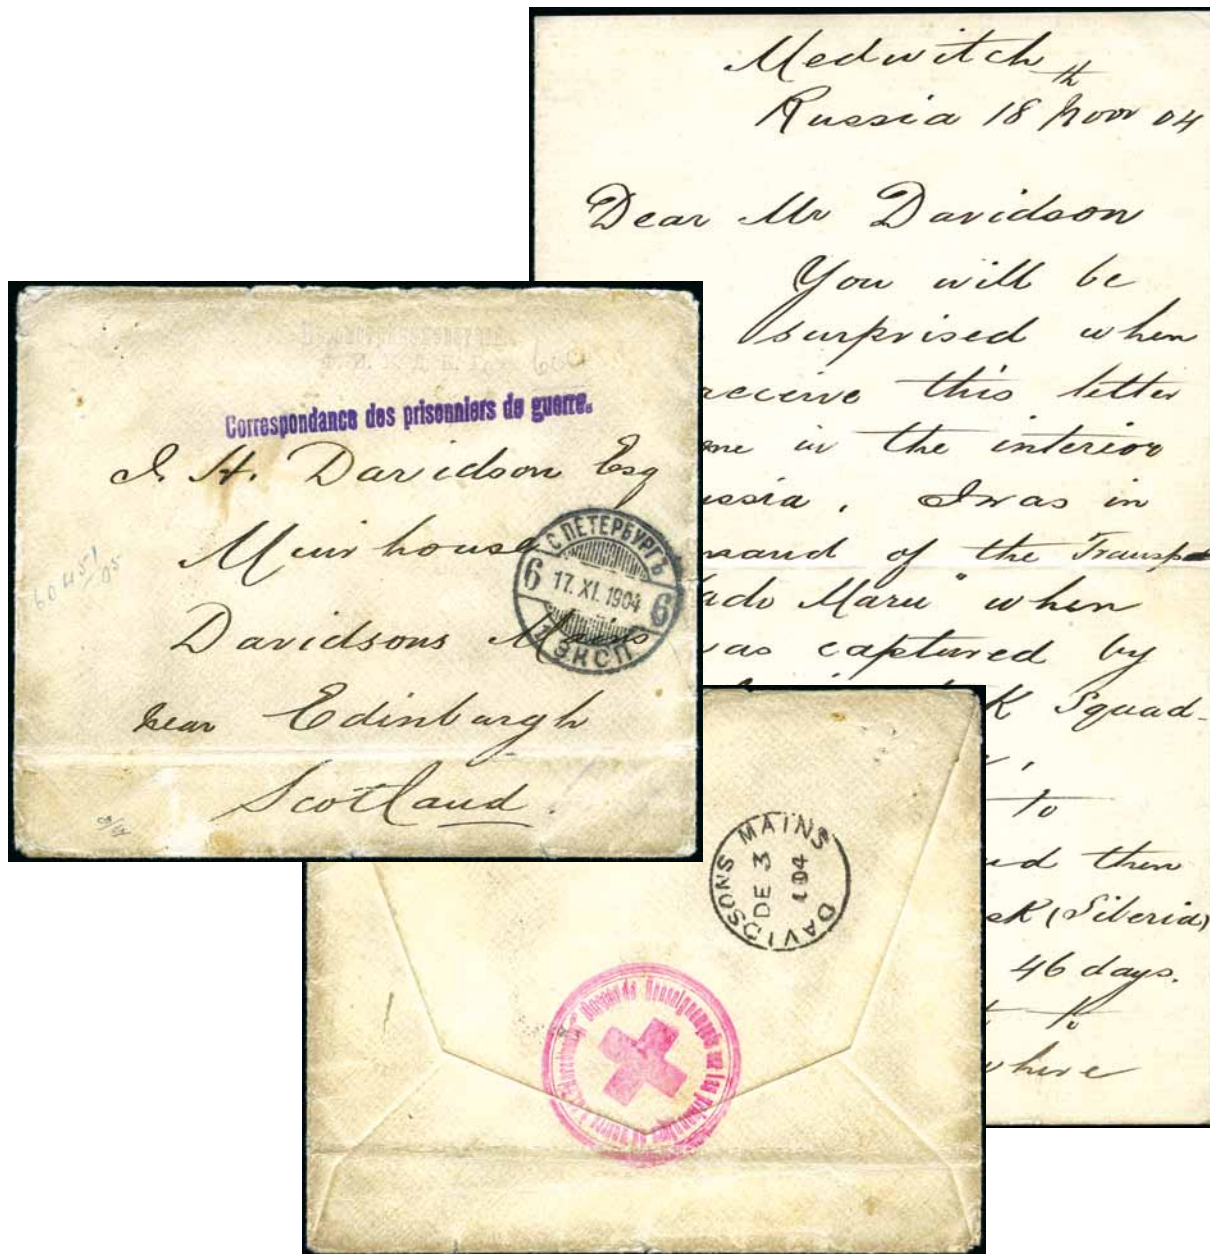 Medwitch
Russia 18th Novr 04
Dear Mr Davidson
You will be
surprised when
receive this letter
me in the interior
ussia. I was in
mand of the Transp
ado Maru" when
was captured by
K Squad-
to
nd then
sk (Siberia)
46 days.
to
where
600
Correspondance des prisonniers de guerre.
J. H. Davidson Esq
Muirhouse
Davidsons Mains
near Edinburgh
Scotland.
С ПЕТЕРБУРГЪ
6 17. XI. 1904 6
ЭКСП.
DAVIDSONS MAINS
DE 3
04
Bureau de Renseignements sur les prisonniers de guerre